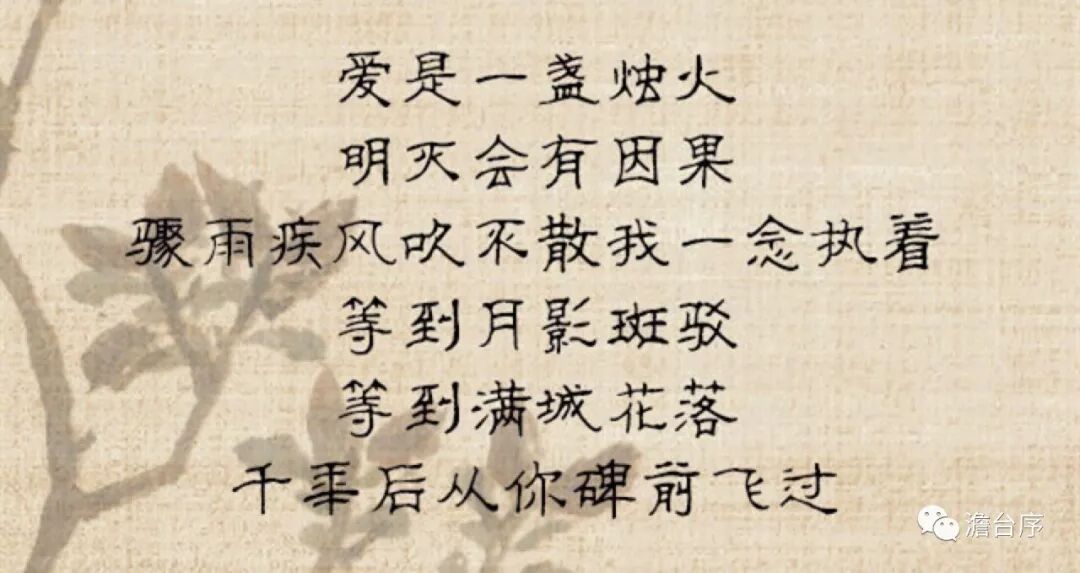 爱是一盏烛火
明灭会有因果
骤雨疾风吹不散我一念执着
等到月影斑驳
等到满城花落
千年后从你碑前飞过
澹台序